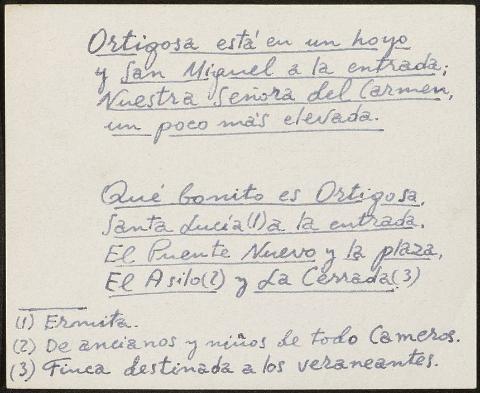 Ortigosa está en un hoyo
y San Miguel a la entrada;
Nuestra Señora del Carmen,
un poco más elevada.
Qué bonito es Ortigosa,
Santa Lucía(1) a la entrada,
El Puente Nuevo y la plaza,
El Asilo(2) y La Cerrada(3)
(1) Ermita.
(2) De ancianos y niños de todo Cameros.
(3) Finca destinada a los veraneantes.